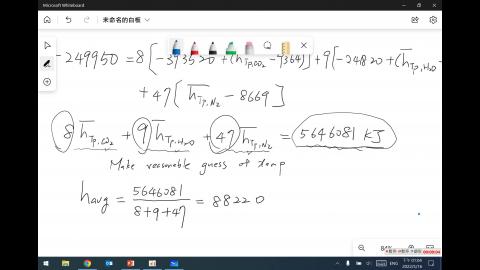 Microsoft Whiteboard
未命名的白板
-249950 = 8[-393520+(h̄Tp,CO2-9364)]+9[-24820+(h̄Tp,H2O-
+47[h̄Tp,N2-8669]
8h̄Tp,CO2+9h̄Tp,H2O+47h̄Tp,N2=5646081 kJ
Make reasonable guess of temp
havg = 5646081/8+9+47 = 88220
ENG
2022/5/16